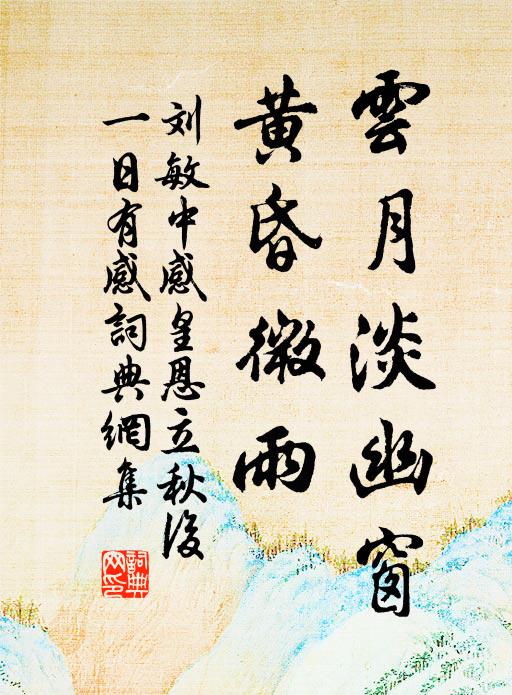 雲月淡幽窗
黄昏微雨
刘敏中感皇恩立秋後
一日有感詞典網集
詞典網印